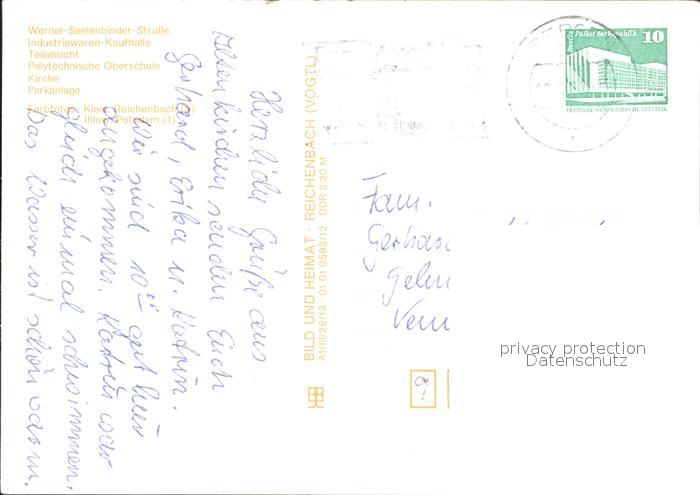 Werner-Seelenbinder-Straße
Industriewaren-Kaufhalle
Teilansicht
Polytechnische Oberschule
Kirche
Parkanlage
Farbfotos: Klein, Reichenbach
Ihlow, Potsdam (1)
Herzliche Grüße aus
senden Euch
Gerhard, Erika u. Katrin.
Wir sind 10 gut hier
angekommen. Katrin war
gleich einmal schwimmen.
Das Wasser ist schön warm.
BILD UND HEIMAT · REICHENBACH (VOGTL)
A1/III/26/13 · 01 01 0593/12 · DDR 0,20 M
Berlin Palast der Republik 10
DEUTSCHE DEMOKRATISCHE REPUBLIK
Fam.
privacy protection
Datenschutz
9